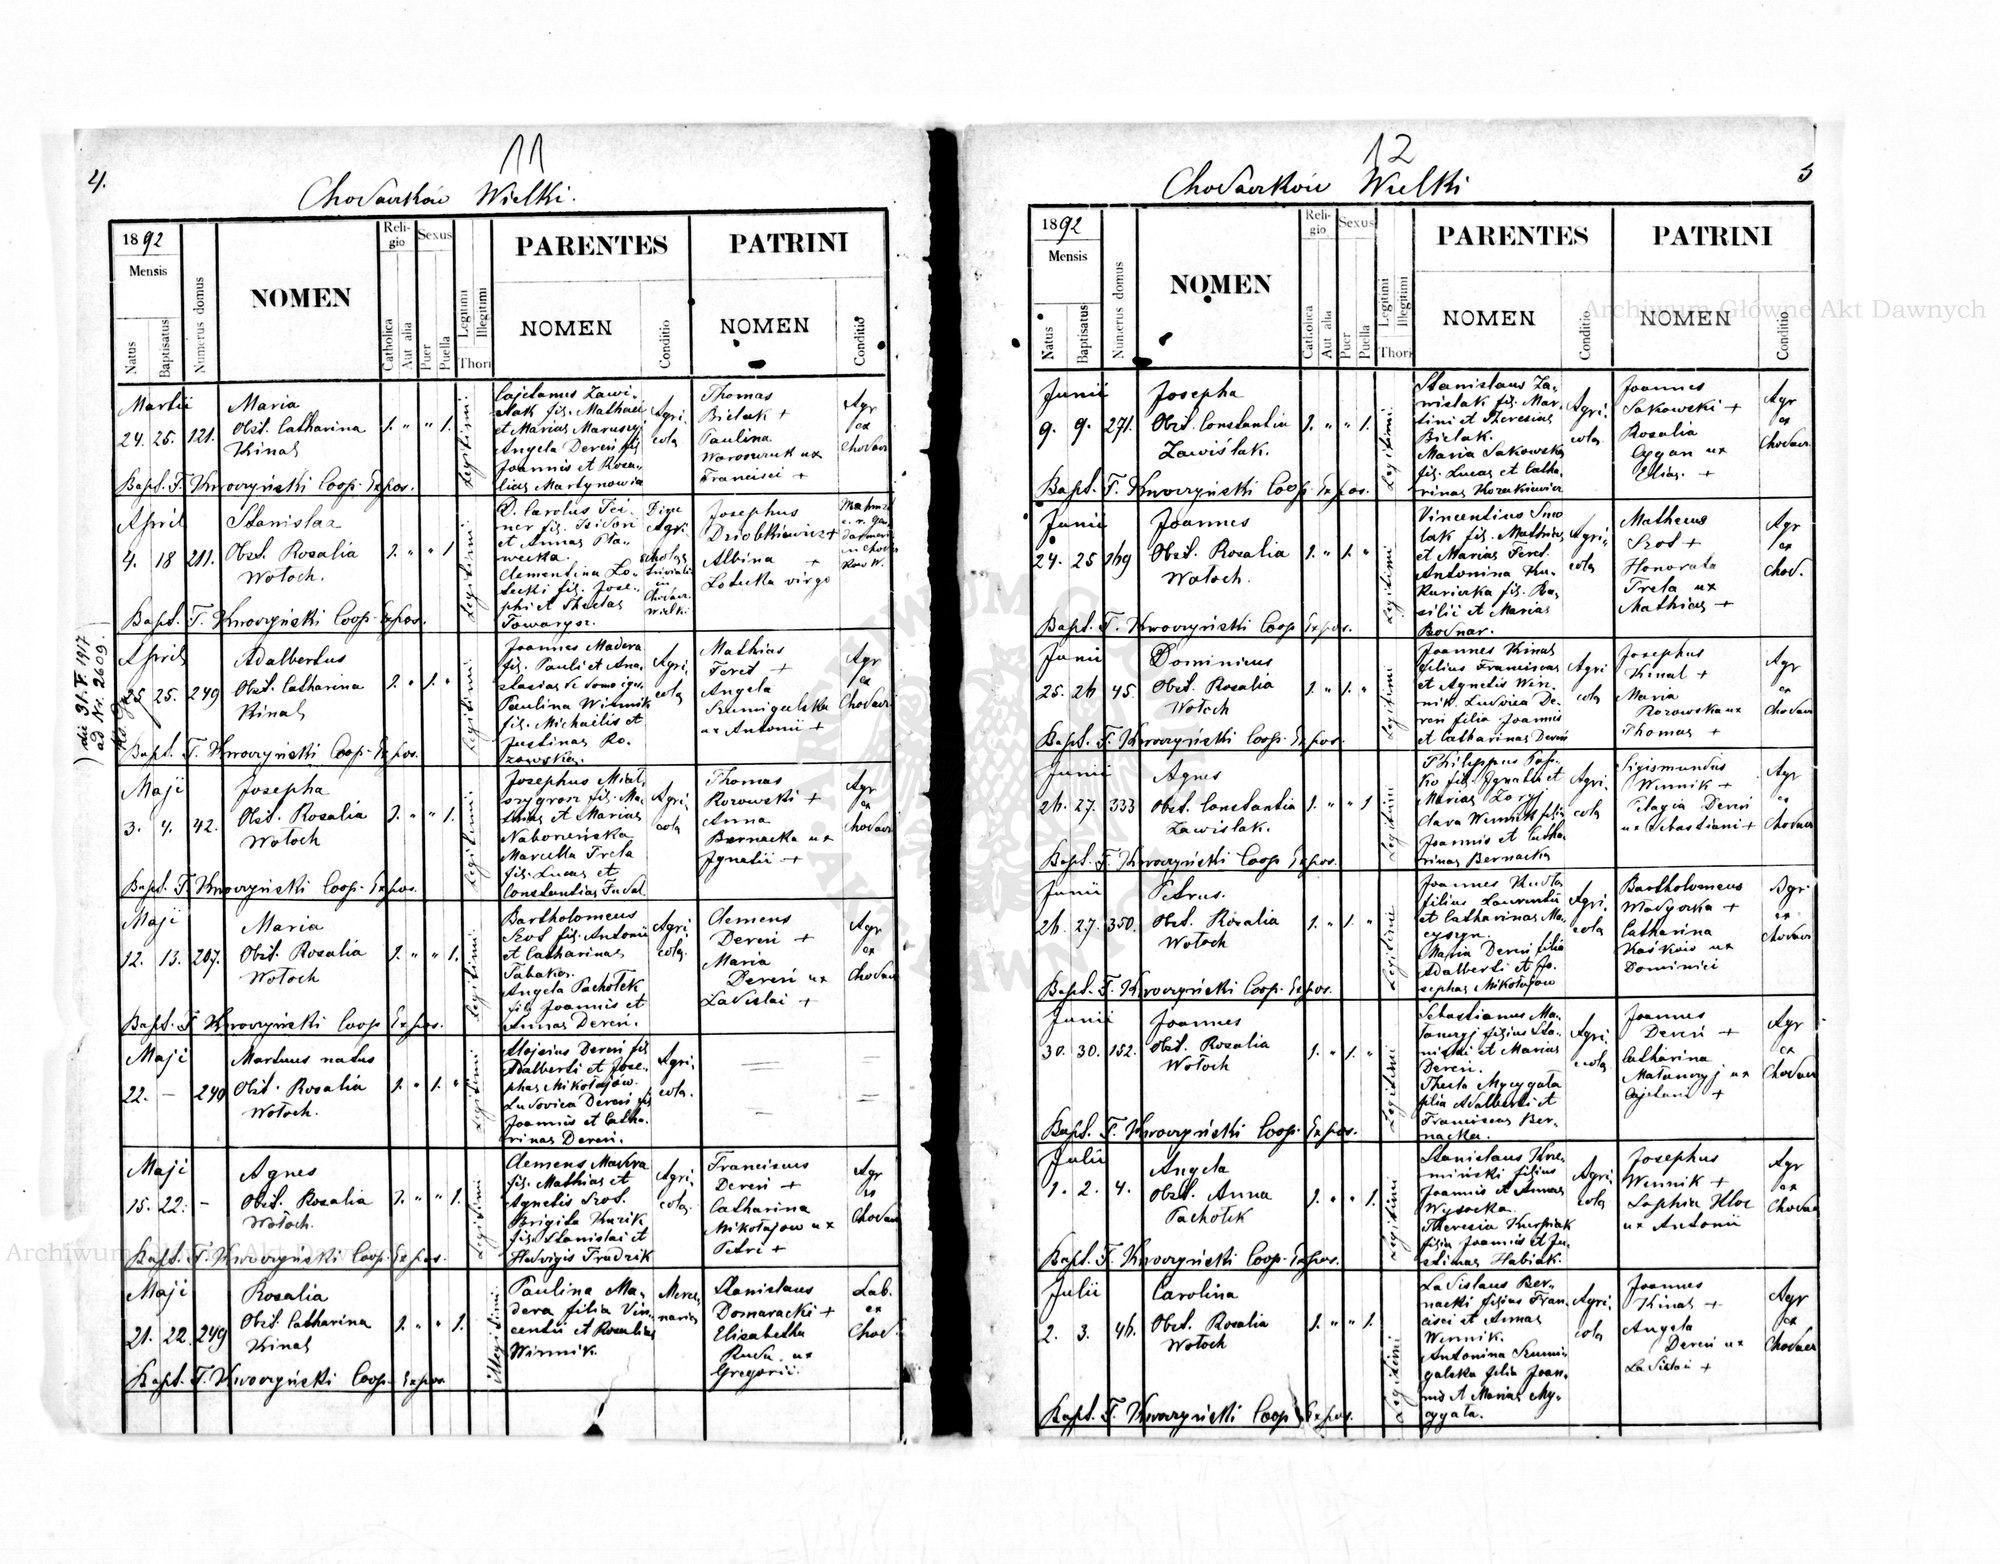 11
4.
Chodaczków Wielki.
1892
Mensis
Natus
Baptisatus
Numerus domus
NOMEN
Religio
Catholica
Aut alia
Sexus
Puer
Puella
Legitimi
Illegitimi
Thori
PARENTES
NOMEN
Conditio
PATRINI
NOMEN
Conditio
Martii
24. 25. 121.
Maria
Obst. Catharina
Kinal
1. " " 1.
Legitimi
Cajetanus Zawi-
slak fil. Mathaei
et Mariae
Angela Dereń fil.
Joannis et Rosa-
liae Martynowia
Agri
cola
Thomas
Bielak +
Paulina
ux
Francisci +
Agr
ex
Chodacz
Bapt. T. Coop. Expos.
April
4. 18 211.
Stanislaa
Obst. Rosalia
Wołoch.
1. " " 1
Legitimi
D. Carolus
fil. Isidori
et Annae
Clementina Lo-
tecki fil. Jose-
phi et Theclae
Towarysz.
Josephus
Dziobkiewicz +
Albina +
Lotecka virgo
Bapt. T. Coop. Expos.
April
25 25. 249
Adalbertus
Obst. Catharina
Kinal
1. " 1. "
Legitimi
Joannes Madera
fil. Pauli et Ana-
stasiae de domo
Paulina Winnik
fil. Michaelis et
Justinae Ro-
zowska.
Agri
cola
Mathias
Feret +
Angela
Szumigalska
ux Antonii +
Agr
ex
Chodacz
Bapt. T. Coop. Expos.
) die 31. V. 1917
ad Nr. 2609. )
Maji
3. 4. 42.
Josepha
Obst. Rosalia
Wołoch
1. " " 1.
Legitimi
Josephus
fil. Ma-
et Mariae
Marcella Treta
fil. Lucae et
Constantiae
Agri
cola
Thomas
Rozowski +
Anna
Bernacka ux
Ignatii +
Agr
ex
Chodacz
Bapt. T. Coop. Expos.
Maji
12. 13. 207.
Maria
Obst. Rosalia
Wołoch
1. " " 1.
Legitimi
Bartholomeus
Szot fil. Antonii
et Catharinae
Tabaka.
Angela Pachołek
fil. Joannis et
Annae Dereń.
Agri
cola.
Clemens
Dereń +
Maria
Dereń ux
Ladislai +
Agr
ex
Chodacz
Bapt. T. Coop. Expos.
Maji
22. — 240
Mortuus natus
Obst. Rosalia
Wołoch.
1. " 1. "
Legitimi
Aloisius Dereń fil.
Adalberti et Jose-
phae Mikołajów.
Ludovica Dereń fil.
Joannis et Catha-
rinae Dereń.
Agri-
cola.
Maji
15. 22. -
Agnes
Obst. Rosalia
Wołoch.
1. " " 1.
Legitimi
Clemens Madera
fil. Mathiae et
Agnetis Szot.
Brigita Kurik
fil. Stanislai et
Hedvigis
Agri-
cola
Franciscus
Dereń +
Catharina
Mikołajów ux
Petri +
Agr
ex
Chodacz
Bapt. T. Coop. Expos.
Maji
21. 22. 249
Rosalia
Obst. Catharina
Kinal
1. " " 1.
Illegitimi
Paulina Ma-
dera filia Vin-
centii et Rosaliae
Winnik.
Merce-
naria
Stanislaus
Domaracki +
Elisabetha
Ruda ux
Gregorii.
Lab.
ex
Chod.
Bapt. T. Coop. Expos
12
5
Chodaczków Wielki
1892
Mensis
Natus
Baptisatus
Numerus domus
NOMEN
Religio
Catholica
Aut alia
Sexus
Puer
Puella
Legitimi
Illegitimi
Thori
PARENTES
NOMEN
Conditio
PATRINI
NOMEN
Conditio
Junii
9. 9. 271.
Josepha
Obst. Constantia
Zawiślak.
1. " " 1.
Legitimi
Stanislaus Za-
wislak fil. Mar-
tini et Theresiae
Bielak.
Maria Sakowska
fil. Lucae et Catha-
rinae Kozakiewicz
Agri-
cola
Joannes
Sakowski +
Rosalia
Cygan ux
Eliae. +
Agr
ex
Chodacz
Bapt. T. Coop. Expos.
Junii
24. 25 169
Joannes
Obst. Rosalia
Wołoch.
1. " 1. "
Legitimi
Vincentius Smo
lak fil. Mathiae
et Mariae Feret.
Antonina Ku-
fil. Ba-
silii et Mariae
Bodnar.
Agri-
cola
Matheus
Szot +
Honorata
Treta ux
Mathiae +
Agr
ex
Chod.
Bapt. T. Coop. Expos.
Junii
25. 26 45
Dominicus
Obst. Rosalia
Wołoch
1. " 1. "
Legitimi
Joannes Kinal
filius Francisci
et Agnetis Win-
nik. Ludvica De-
reń filia Joannis
et Catharinae Dereń
Agri
cola
Josephus
Kinal +
Maria
Rozowska ux
Thomae +
Agr
ex
Chodacz
Bapt. T. Coop. Expos.
Junii
26. 27. 333
Agnes
Obst. Constantia
Zawislak.
1. " " 1
Legitimi
Philippus
fil. Ignatii et
Mariae
Clara Winnik filia
Joannis et Catha-
rinae Bernacka
Agri-
cola
Sigismundus
Winnik +
Pelagia Dereń
ux Sebastiani +
Agr
ex
Chodacz
Bapt. T. Coop. Expos.
Junii
26. 27. 350.
Petrus.
Obst. Rosalia
Wołoch
1. " 1. "
Legitimi
Joannes Kudla
filius Laurentii
et Catharinae Ma-
Maria Dereń filia
Adalberti et Jo-
sephae Mikołajów
Agri-
cola
Bartholomeus
+
Catharina
Kaśków ux
Dominici
Agr
ex
Chodacz
Bapt. T. Coop. Expos.
Junii
30. 30. 152.
Joannes
Obst. Rosalia
Wołoch
1. " 1. "
Legitimi
Sebastianus Ma-
filius Sta-
nislai et Mariae
Dereń.
Thecla Mycygała
filia Adalberti et
Franciscae Ber-
nacka.
Agri-
cola
Joannes
Dereń +
Catharina
ux
Cajetani +
Agr
ex
Chodacz
Bapt. T. Coop. Expos.
Julii
1. 2. 4.
Angela
Obst. Anna
Pachołek
1. " " 1.
Legitimi
Stanislaus Krze-
miński filius
Joannis et Annae
Wysocka.
Theresia Kurpiak
filia Joannis et Ju-
stinae Habiak.
Agri-
cola
Josephus
Winnik +
Sophia Kloc
ux Antonii
Agr
ex
Chodacz
Bapt. T. Coop. Expos.
Julii
2. 3. 46.
Carolina
Obst. Rosalia
Wołoch
1. " " 1.
Legitimi
Ladislaus Ber-
nacki filius Fran-
cisci et Annae
Winnik.
Antonina Szumi-
galska filia Joan-
nis et Mariae My-
cygała.
Agri-
cola
Joannes
Kinal +
Angela
Dereń ux
Ladislai +
Agr
ex
Chodacz
Bapt. T. Coop. Expos.
Archiwum Główne Akt Dawnych